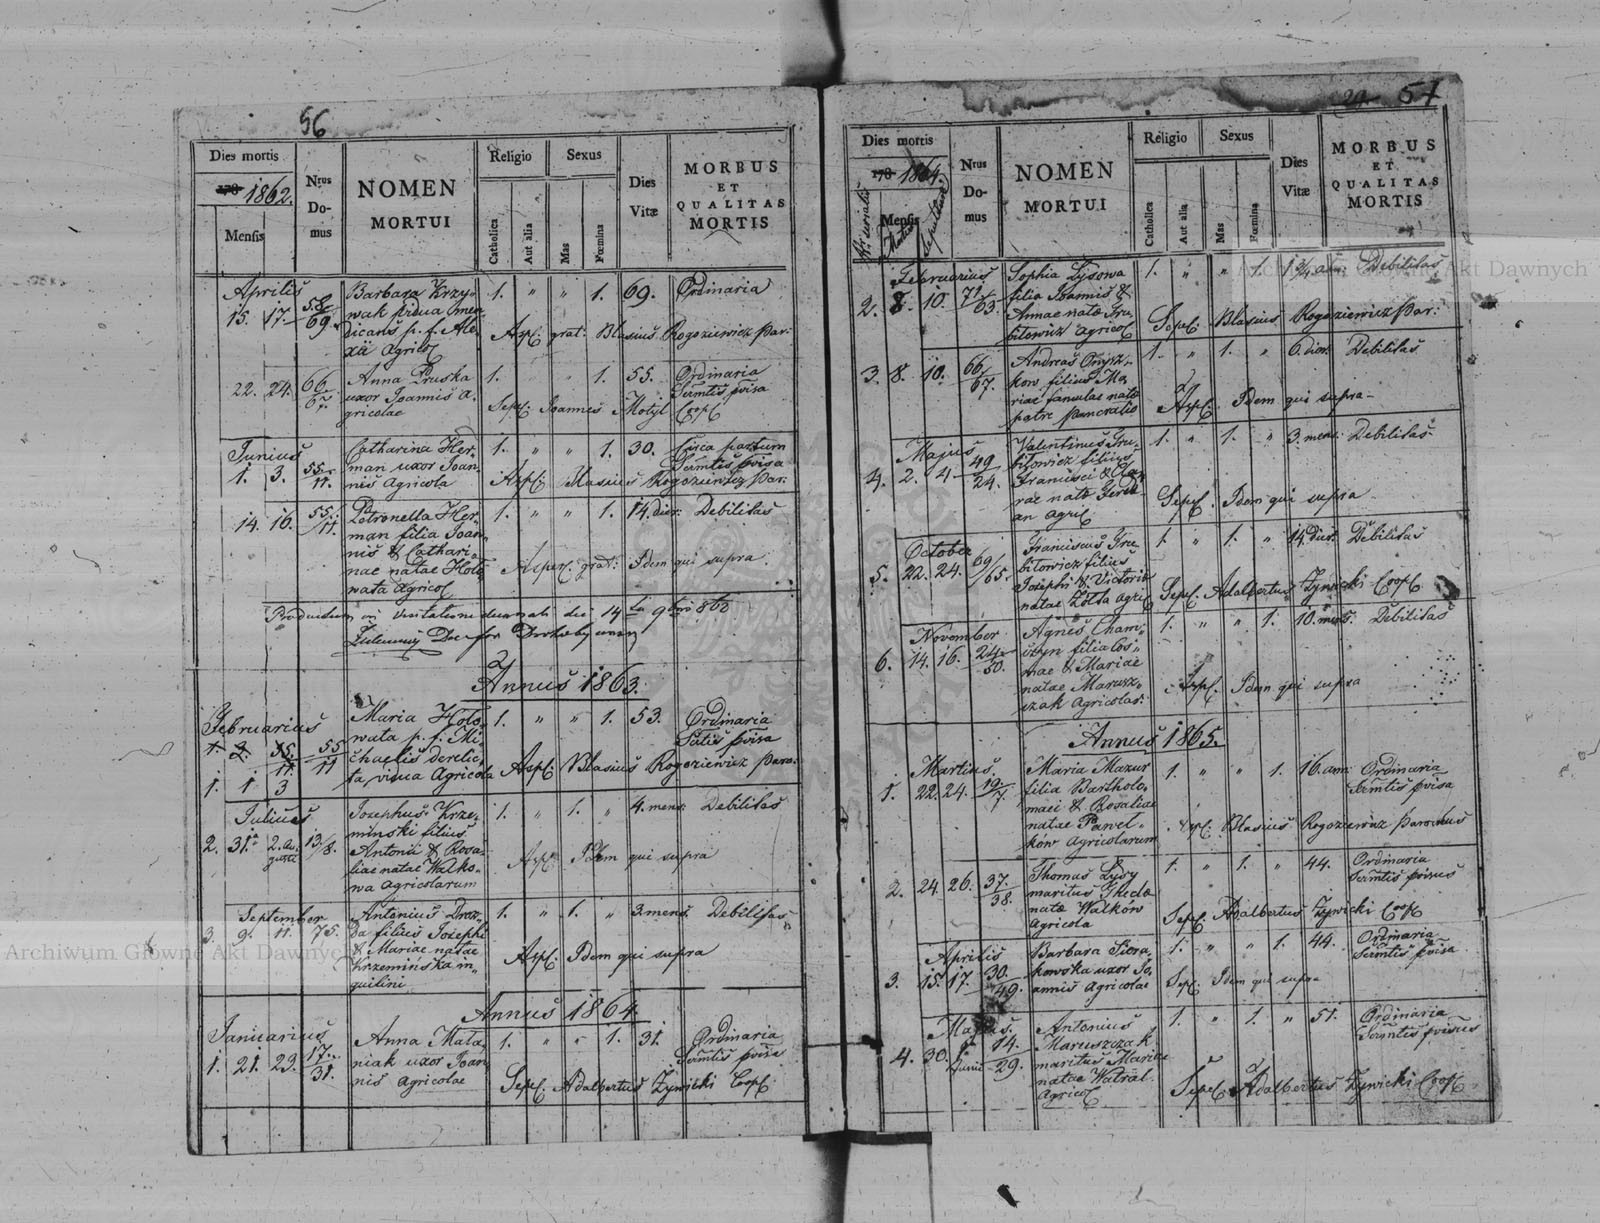 56
Dies mortis
Nrus Do-mus
NOMEN MORTUI
Religio
Sexus
Dies Vitæ
MORBUS ET QUALITAS MORTIS
178 1862.
Mensis
Catholica
Aut alia
Mas
Fœmina
Aprilis
15. 17. 58/69
Barbara Krzy-
wak vidua men
dicans p. f. Ale-
xii agricol
1. " " 1. 69. Ordinaria
Asp: grat: Blasius Rogoziewicz Par:
22. 24. 66/67.
Anna Pruska
uxor Joannis a-
gricolae
1. " 1. 55. Ordinaria
Sermtis provisa
Sepel: Joannes Motyl Coop
Junius
1. 3. 55/11.
Catharina Her-
man uxor Joan-
nis Agricola
1. " " 1. 30. Circa partum
Sermtis provisa
Asp: Blasius Rogoziewicz Par:
14. 16. 55/11.
Petronella Her-
man filia Joan-
nis & Cathari-
nae natae Hoło-
wata Agricol
1. " " 1. 14. dier. Debilitas
Asper: grat: Idem qui supra.
Annus 1863.
Februarius
1. 2. 55/11 55/11
1. 1 3
Maria Hoło-
wata p. f. Mi-
chaelis derelic-
ta vidua Agricola
1. " " 1. 53. Ordinaria
Sctis provisa
Asp: Blasius Rogoziewicz Paro:
Julius
2. 31. 2. Au-
gusti 13/8.
Josephus Krze-
minski filius
Antonii & Rosa-
liae natae Walko-
wa Agricolarum
1. " 1. " 4. mens. Debilitas
Asp: Idem qui supra
September
3. 9. 11. 75.
Antonius Droz-
da filius Josephi
& Mariae natae
Krzemińska in-
quilini
1. " 1. " 3. mens. Debilitas
Asp: Idem qui supra
Annus 1864.
Januarius
1. 21. 23. 17./31.
Anna Mata-
niak uxor Joan
nis Agricolae
1. " " 1. 31. Ordinaria
Sermtis provisa
Sepel: Adalbertus Zywicki Coop:
29 57
Dies mortis
Nrus Do-mus
NOMEN MORTUI
Religio
Sexus
Dies Vitæ
MORBUS ET QUALITAS MORTIS
178 1864.
Mensis
Catholica
Aut alia
Mas
Fœmina
Februarius
2. 8. 10. 71/63.
Sophia Łysowa
filia Joannis &
Annae natae Gru-
bitowicz Agricol
1. " " 1. Debilitas
Sepel: Blasius Rogoziewicz Par:
3. 8. 10. 66/67.
Andreas Onysz-
kow filius Ma-
riae famulae nato
patre Pancratio
1. " 1. " 6. dier. Debilitas
Asp: Idem qui supra-
Majus
4. 2. 4. 49/24.
Valentinus Gru-
bitowicz filius
Francisci & Cla-
rae natae Gerek-
an agric
1. " 1. " 3. mens. Debilitas.
Sepel: Idem qui supra
October
5. 22. 24. 69/65.
Franciscus Gru-
bitowicz filius
Josephi & Victoria
natae Zołta agric
1. " 1. " 14. dier. Debilitas
Sepel: Adalbertus Zywicki Coop
November
6. 14. 16. 24/50.
Agnes Cham-
szyn filia Cos-
mae & Mariae
natae Marusz-
czak Agricolar:
1. " " 1. 10. mens. Debilitas
Asp: Idem qui supra
Annus 1865.
Martius.
1. 22. 24. 19/7.
Maria Mazur
filia Bartholo-
maei & Rosaliae
natae Paweł-
ków Agricolarum
1. " " 1. 16. ann: Ordinaria
Sermtis provisa
Asp: Blasius Rogoziewicz Parochus
2. 24 26. 37./38.
Thomas Łysy
maritus Theclae
natae Walków
Agricola
1. " 1. " 44. Ordinaria
Sermtis provisus
Sepel: Adalbertus Zywicki Coop
Aprilis
3. 15. 17. 30./49.
Barbara Siera-
kowska uxor Jo-
annis Agricolae
1. " " 1. 44. Ordinaria
Sermtis provisa
Sep: Idem qui supra
Majus.
4. 30. 1 Junii 14./29.
Antonius
Maruszczak
maritus Mariae
natae Watral
Agricol
1. " 1. " 51. Ordinaria
Sermtis provisus
Sepel: Adalbertus Zywicki Coop.
Archiwum Główne Akt Dawnych
Archiwum Główne Akt Dawnych